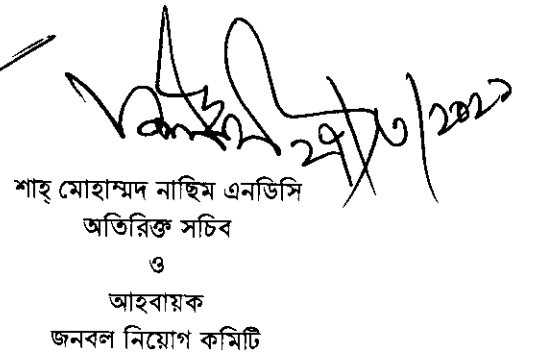 শাহ্ মোহাম্মদ নাছিম এনডিসি
অতিরিক্ত সচিব
ও
আহবায়ক
জনবল নিয়োগ কমিটি